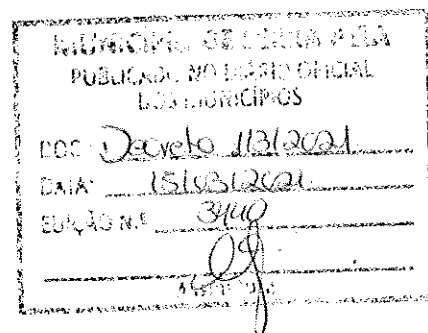 MUNICÍPIO DE
PUBLICADO NO DIÁRIO OFICIAL
DOS MUNICÍPIOS
DOC: Decreto 113/2021
DATA: 15/03/2021
EDIÇÃO N.º 3440